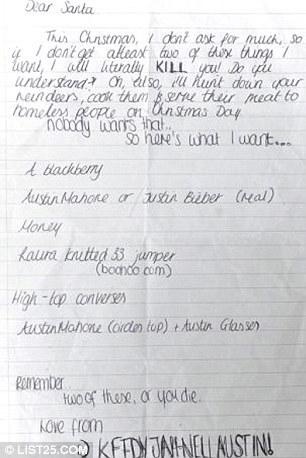 Dear Santa
This Christmas, I don't ask for much, so
if I don't get atleast two of these things I
want, I will literally KILL you! Do you
understand? Oh, also, I'll hunt down your
reindeers, cook them & serve their meat to
homeless people on Christmas Day.
nobody wants that..
so here's what I want...
A blackberry
Austin Mahone or Justin Bieber (real)
Money
Laura knitted 33 jumper
(boohoo.com)
High-top converses
Austin Mahone (circles top) + Austin Glasses
Remember
two of these, or you die.
Love from
AUSTIN!
© LIST25.COM